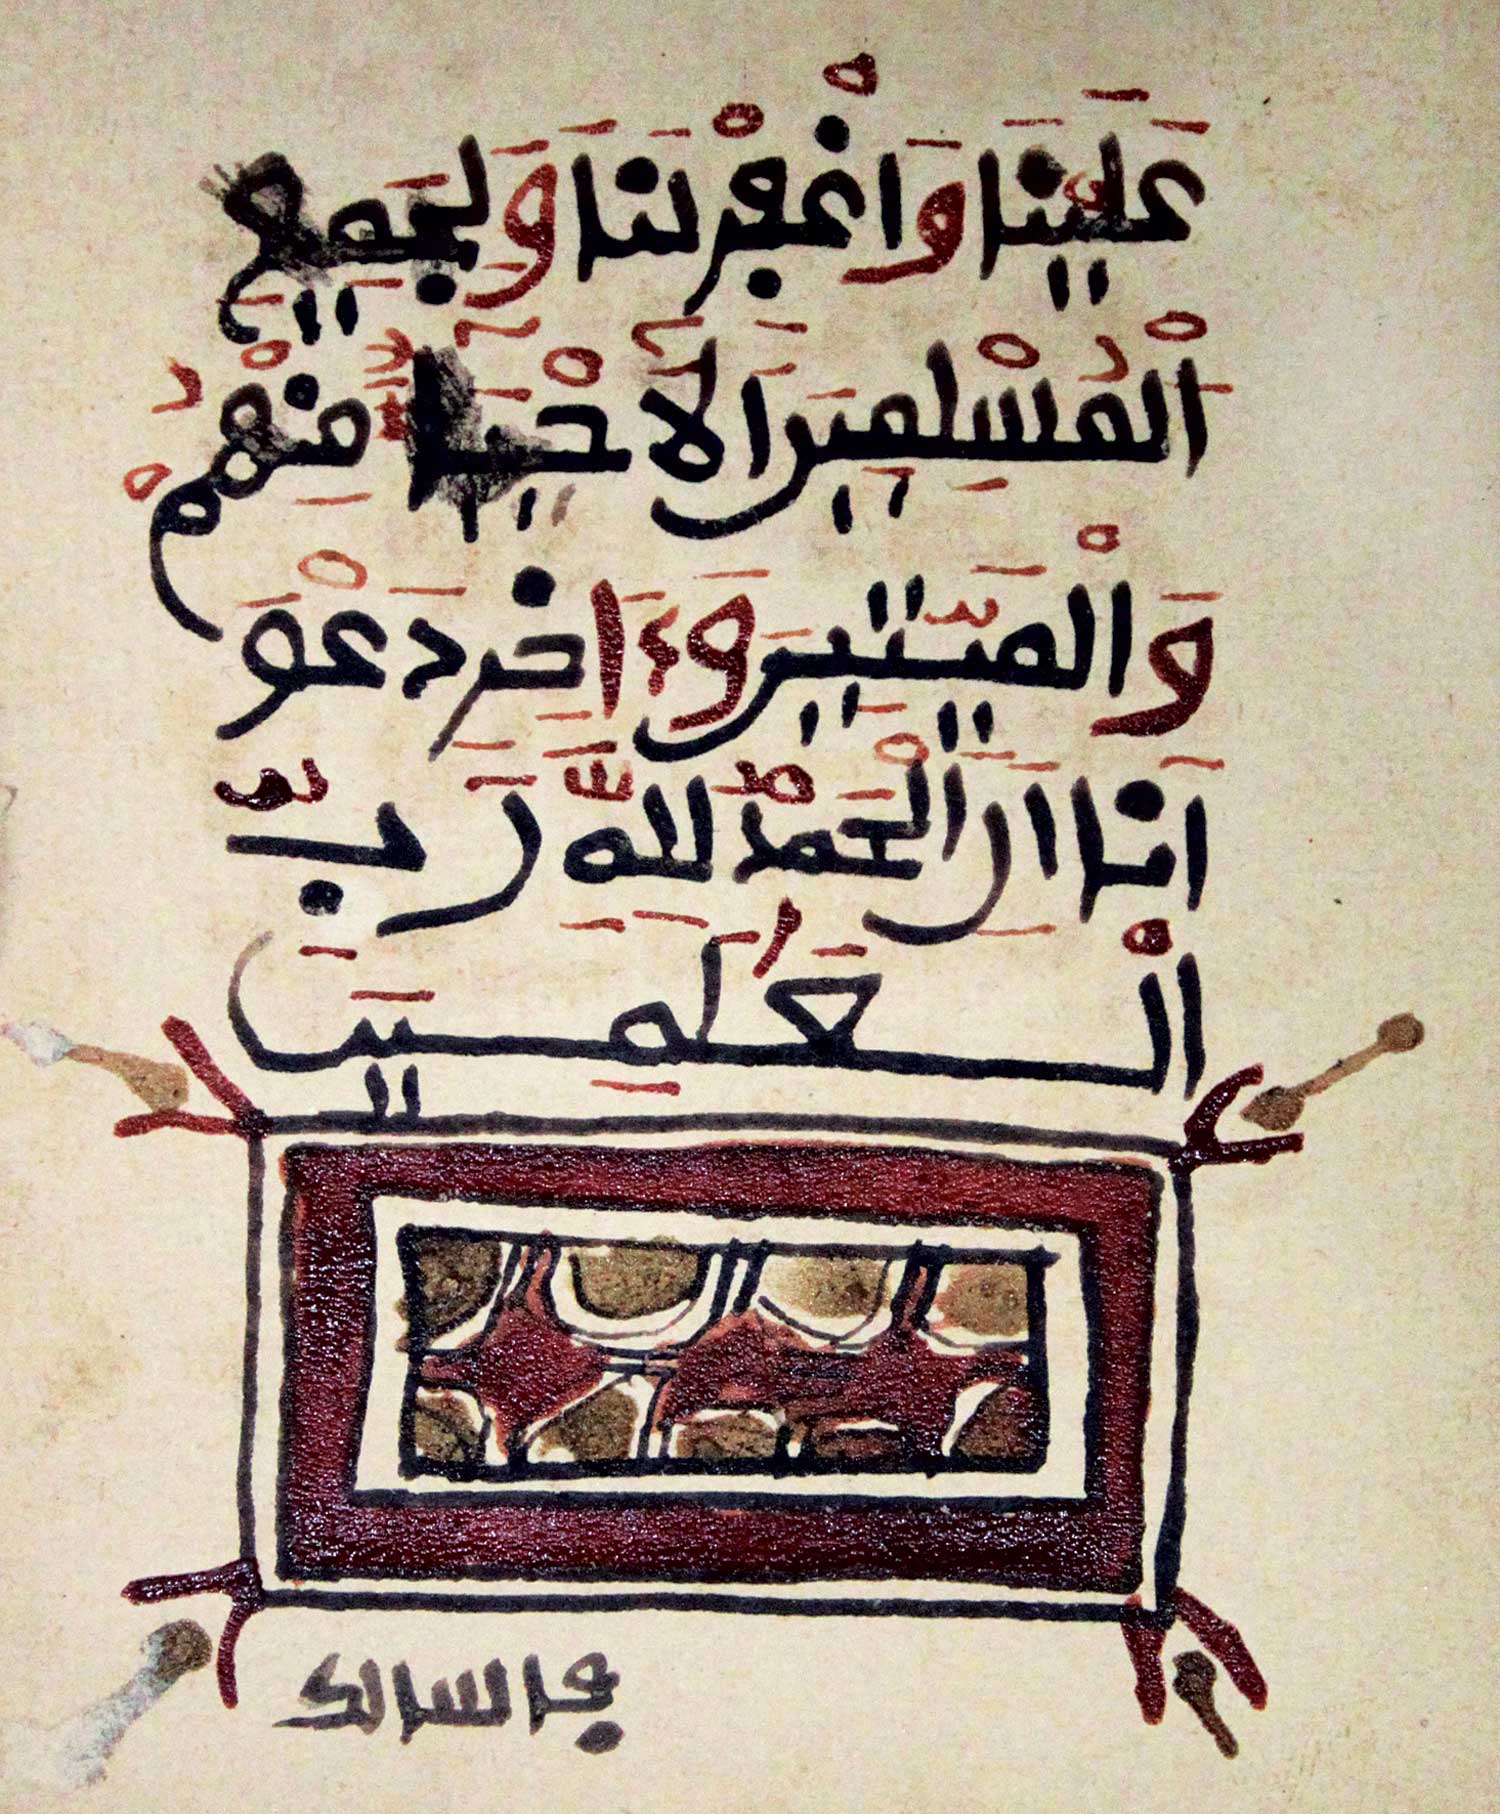 عَلَيْنَا وَاغْفِرْ لَنَا وَلِجَمِيعِ
الْمُسْلِمِينَ الْأَحْيَآءِ مِنْهُمْ
وَالْمَيِّتِينَ وَءَاخِرِ دَعْوَ
انَا أَنِ الْحَمْدُ لِلَّهِ رَبِّ
الْعَٰلَمِينَ